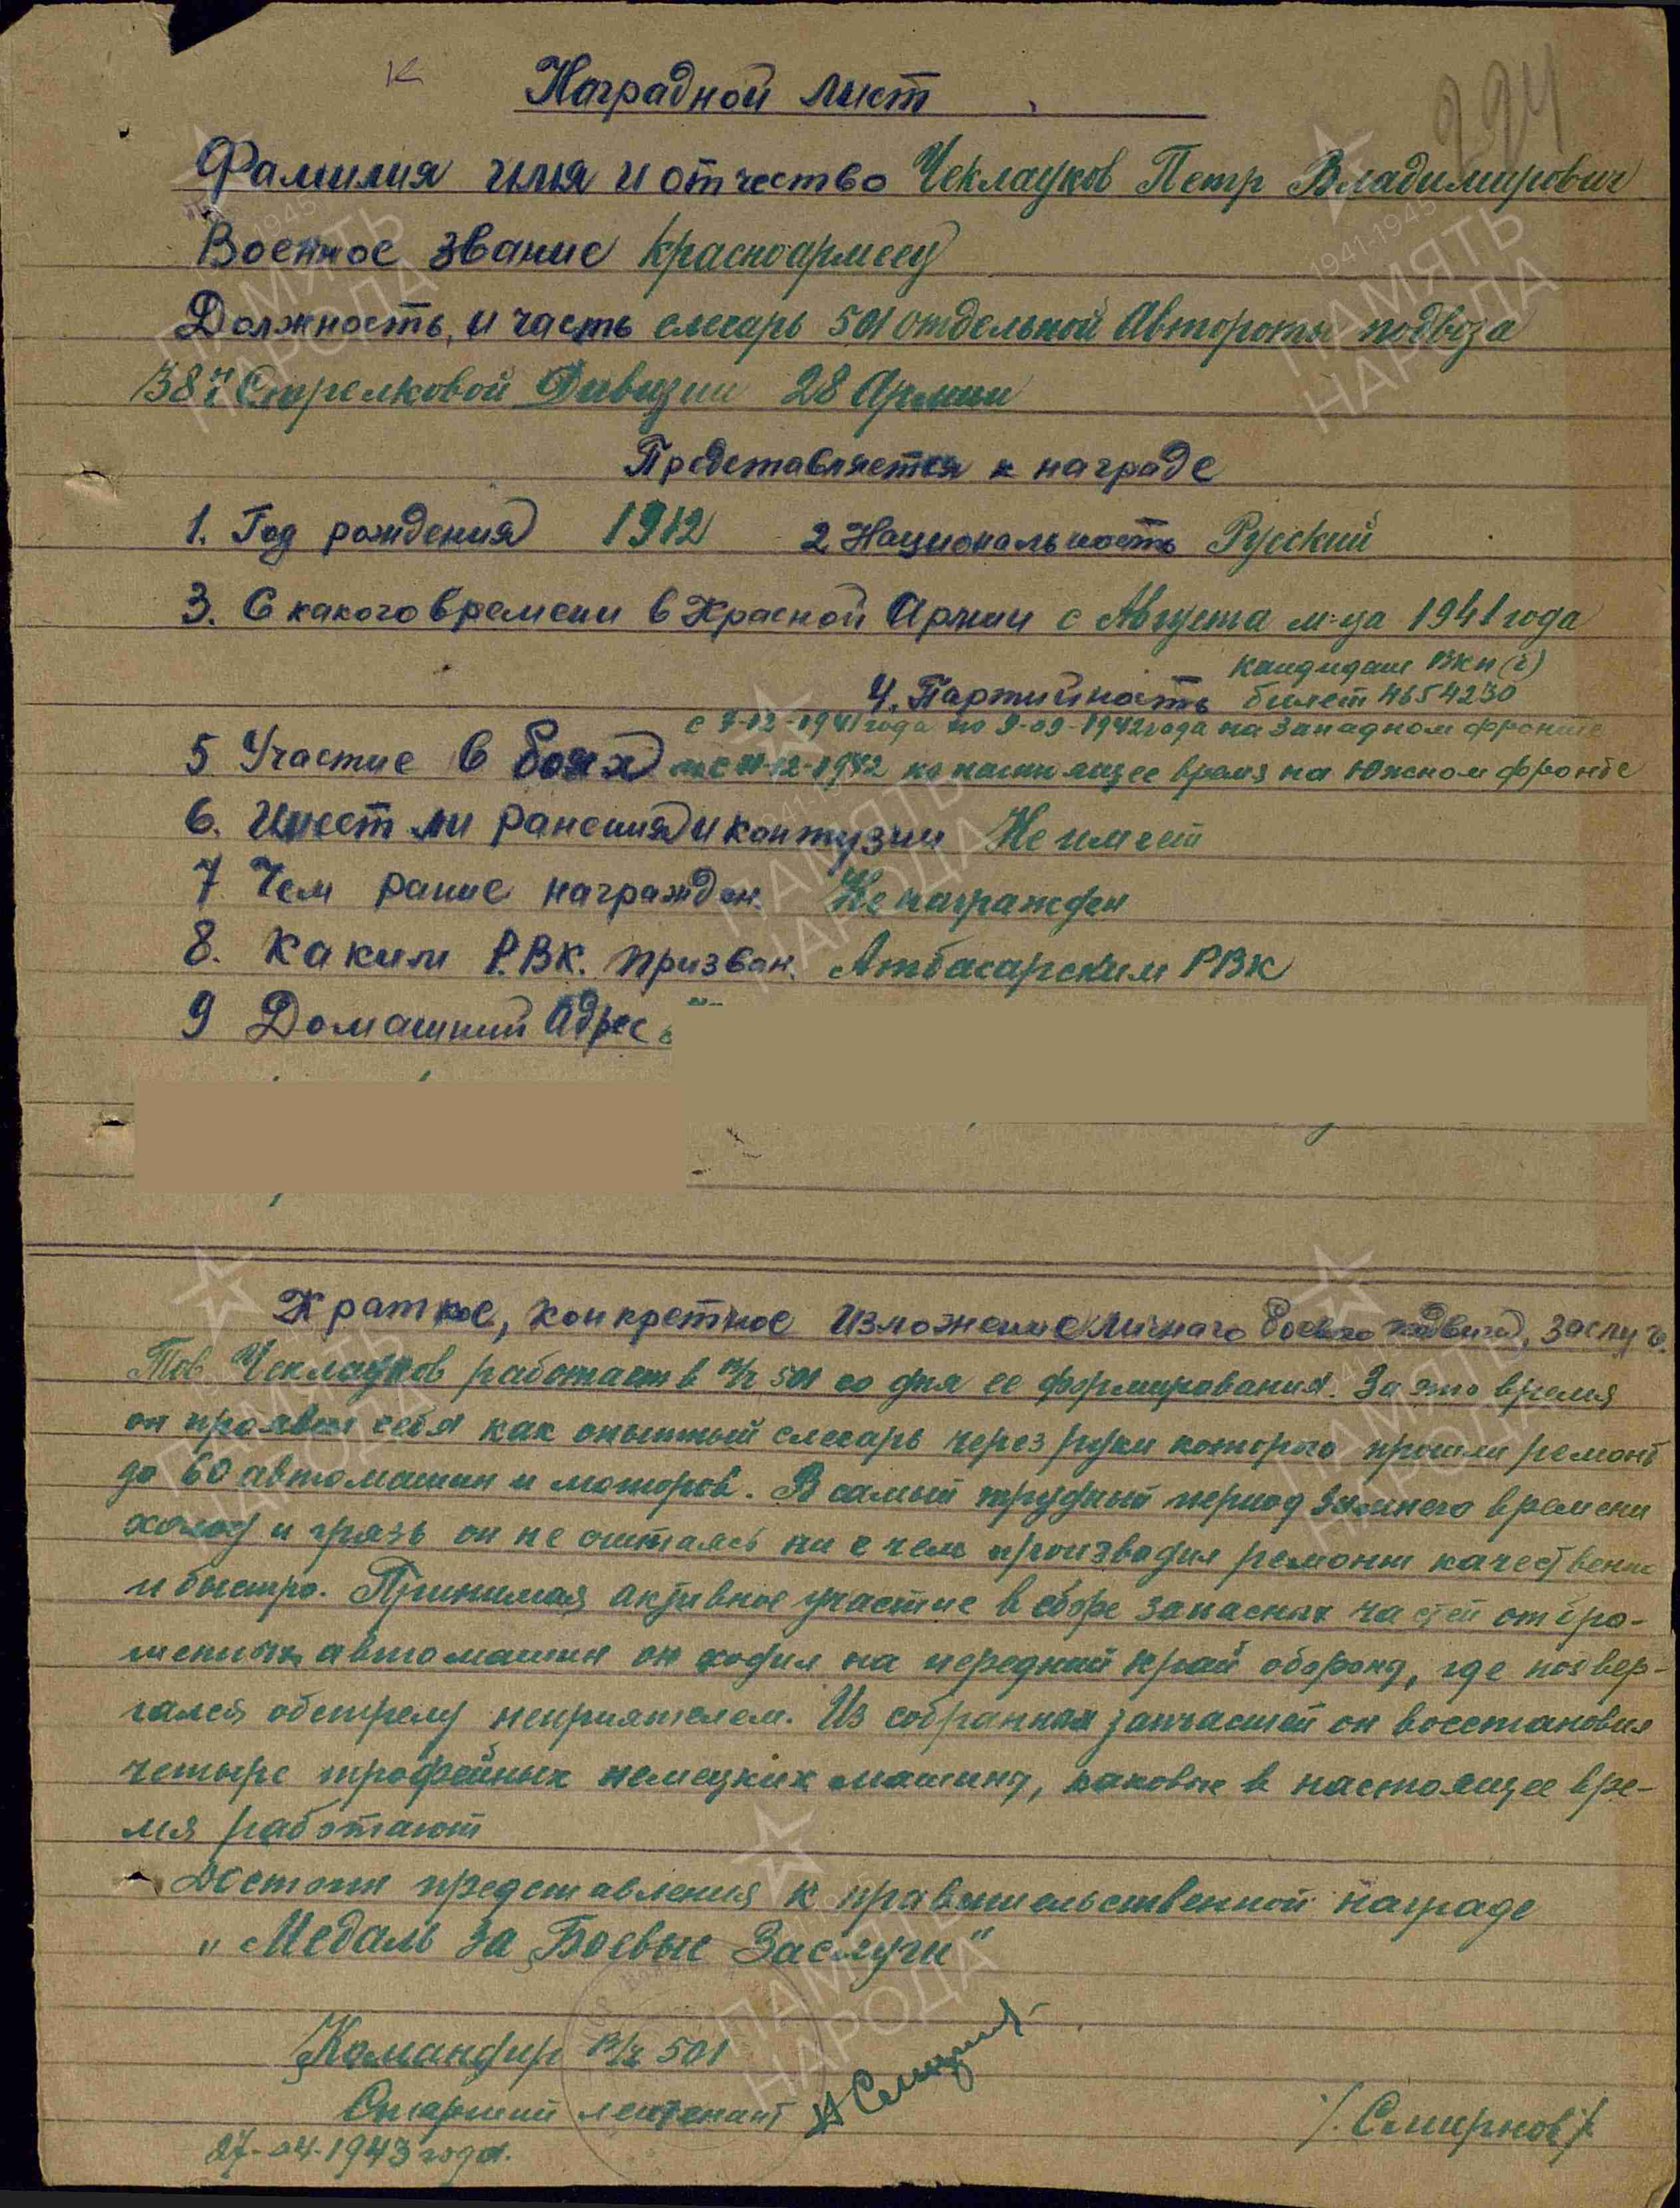 К
Наградной лист
224
Фамилия имя и отчество Чеклауков Петр Владимирович
Военное звание красноармеец
Должность, и часть слесарь 501 отдельной Автороты подвоза
Стрелковой Дивизии 28 Армии
Представляется к награде
1. Год рождения 1912 2 Национальность Русский
3. С какого времени в Красной Армии с Августа м-ца 1941 года
кандидат ВКП(б)
4. Партийность билет 4654230
с 7-12-1941 года по 9-09-1942 года на Западном фронте
5 Участие в боях 12-1942 по настоящее время на Южном фронте
6. Имеет ли ранения и контузии Не имеет
7 Чем рание награжден. Не награжден
8. Каким Р.ВК. призван. Атбасарским РВК
9 Домашний адрес
Краткое, конкретное изложение личного боевого подвига, заслуг.
Тов Чеклауков работает в в/ч 501 со дня ее формирования. За это время
он проявил себя как опытный слесарь через руки которого прошли ремонт
до 60 автомашин и моторов. В самый трудный период зимнего времени
холод и грязь он не считаясь ни с чем производил ремонт качественно
и быстро. Принимая активное участие в сборе запасных частей от бро-
шенных автомашин он ходил на передний край обороны, где подвер-
гался обстрелу неприятелем. Из собранных запчастей он восстановил
четыре трофейных немецких машины, каковые в настоящее вре-
мя работают
Достоин представления к правительственной награде
„Медаль За Боевые Заслуги"
Командир в/ч 501
Старший лейтенант
/. Смирнов/.
27-04-1943 года.
1941-1945
ПАМЯТЬ
НАРОДА